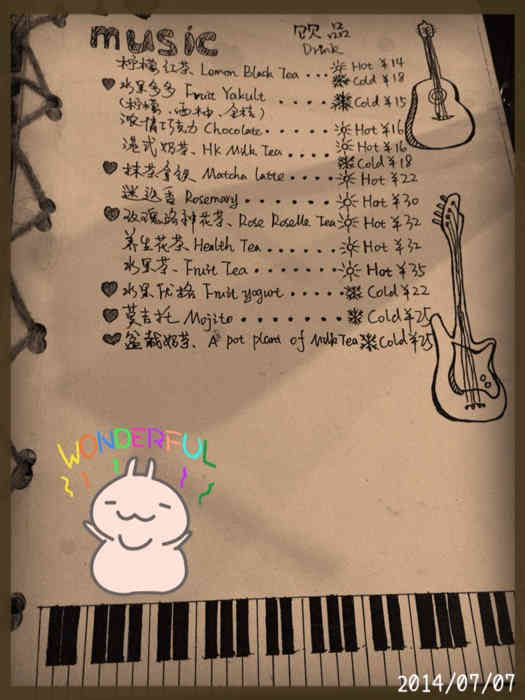 music
饮品
Drink
柠檬红茶、Lemon Black Tea ... Hot ¥14
Cold ¥18
水果多多 Fruit Yakult ..... Cold ¥15
(柠檬、西柚、金桔)
浓情巧克力 Chocolate ..... Hot ¥16
港式奶茶、HK Milk Tea .... Hot ¥16
Cold ¥18
抹茶拿铁 Matcha latte .... Hot ¥22
迷迭香 Rosemary ....... Hot ¥30
玫瑰洛神花茶、Rose Roselle Tea Hot ¥32
养生花茶、Health Tea ...... Hot ¥32
水果茶、Fruit Tea ........ Hot ¥35
水果优格 Fruit yogurt ..... Cold ¥22
莫吉托 Mojito ....... Cold ¥25
盆栽奶茶、A pot plant of Milk Tea Cold ¥25
WONDERFUL
2014/07/07